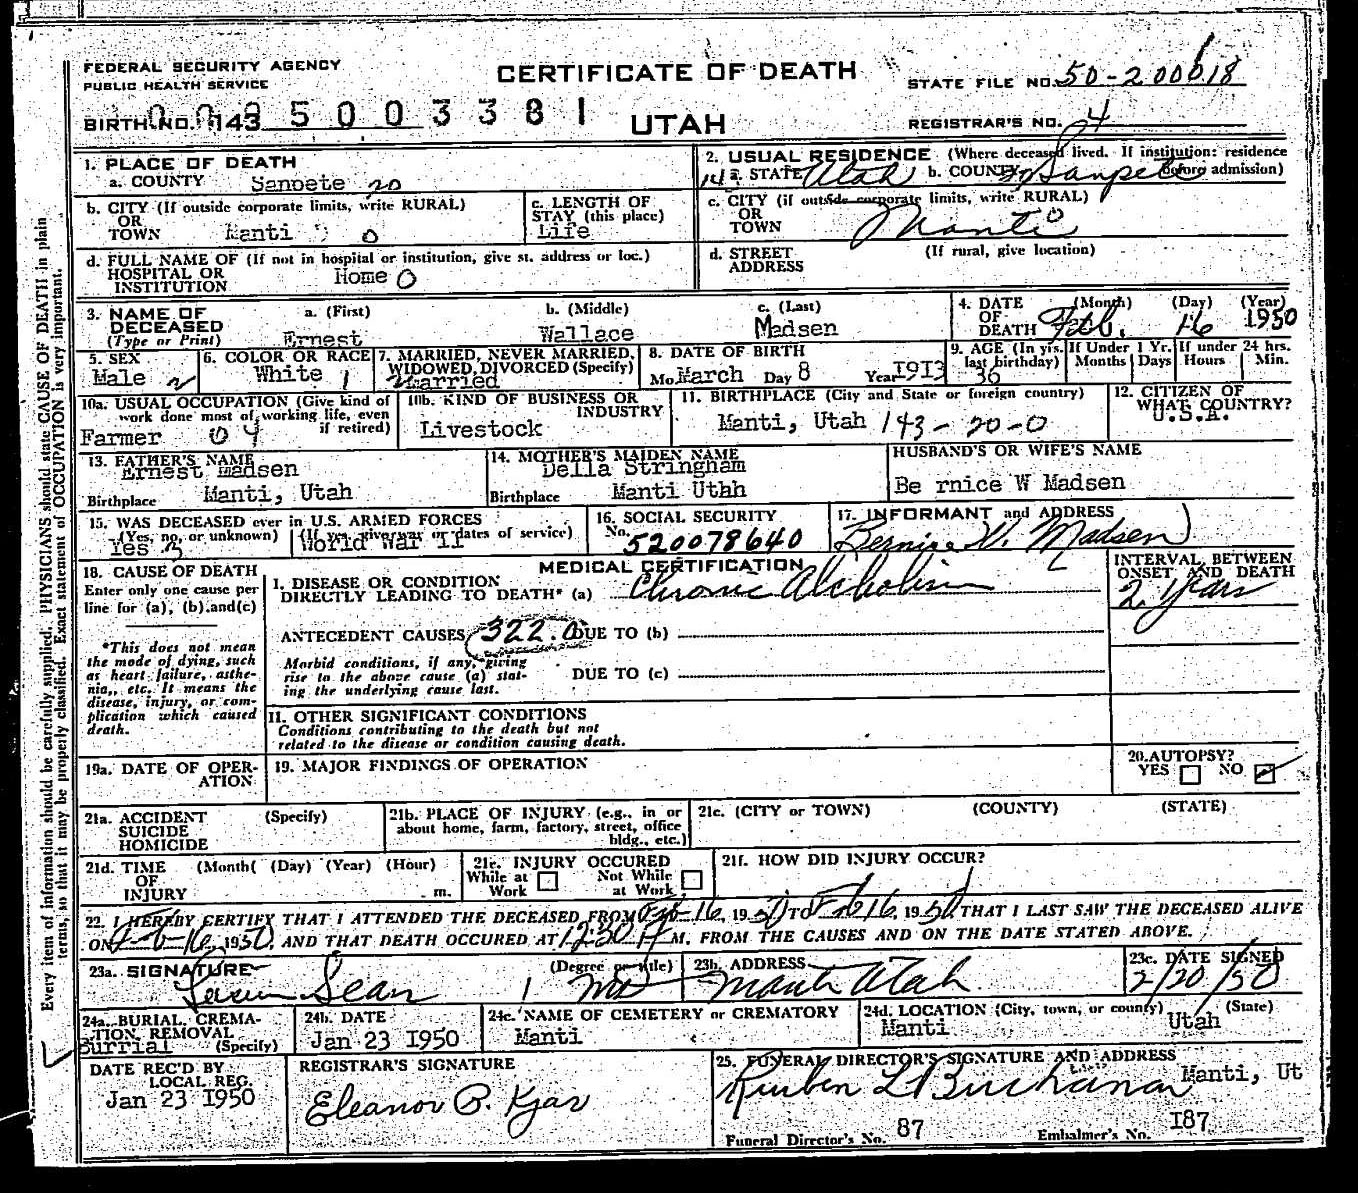 FEDERAL SECURITY AGENCY
PUBLIC HEALTH SERVICE
CERTIFICATE OF DEATH
STATE FILE NO. 50-200618
BIRTH NO. 143
5003381
UTAH
REGISTRAR'S NO. 4
1. PLACE OF DEATH
a. COUNTY Sanpete 20
2. USUAL RESIDENCE (Where deceased lived. If institution: residence before admission)
a. STATE Utah b. COUNTY Sanpete
b. CITY (If outside corporate limits, write RURAL)
OR
TOWN Manti 0
c. LENGTH OF
STAY (this place)
Life
c. CITY (if outside corporate limits, write RURAL)
OR
TOWN Manti
d. FULL NAME OF (If not in hospital or institution, give st. address or loc.)
HOSPITAL OR
INSTITUTION Home 0
d. STREET
ADDRESS
(If rural, give location)
3. NAME OF
DECEASED
(Type or Print)
a. (First) Ernest
b. (Middle) Wallace
c. (Last) Madsen
4. DATE
OF
DEATH
(Month) (Day) (Year)
Feb. 16 1950
5. SEX
Male 2
6. COLOR OR RACE
White 1
7. MARRIED, NEVER MARRIED,
WIDOWED, DIVORCED (Specify)
Married
8. DATE OF BIRTH
Mo. March Day 8 Year 1913
9. AGE (In yrs.
last birthday)
36
If Under 1 Yr.
Months Days
If under 24 hrs.
Hours Min.
10a. USUAL OCCUPATION (Give kind of
work done most of working life, even
if retired)
Farmer 04
10b. KIND OF BUSINESS OR
INDUSTRY
Livestock
11. BIRTHPLACE (City and State or foreign country)
Manti, Utah 143-20-0
12. CITIZEN OF
WHAT COUNTRY?
U.S.A.
13. FATHER'S NAME
Ernest Madsen
Birthplace Manti, Utah
14. MOTHER'S MAIDEN NAME
Della Stringham
Birthplace Manti Uthh
HUSBAND'S OR WIFE'S NAME
Be rnice W Madsen
15. WAS DECEASED ever in U.S. ARMED FORCES
(Yes, no, or unknown) (If yes, give war or dates of service)
Yes World War II
16. SOCIAL SECURITY
No. 520078640
17. INFORMANT and ADDRESS
Bernice W. Madsen
MEDICAL CERTIFICATION
18. CAUSE OF DEATH
Enter only one cause per
line for (a), (b), and (c)
*This does not mean
the mode of dying, such
as heart failure, asthe-
nia, etc. It means the
disease, injury, or com-
plication which caused
death.
I. DISEASE OR CONDITION
DIRECTLY LEADING TO DEATH* (a) Chronic Alcholism
INTERVAL BETWEEN
ONSET AND DEATH
2 years
ANTECEDENT CAUSES 322.0 DUE TO (b)
Morbid conditions, if any, giving
rise to the above cause (a) stat-
ing the underlying cause last.
DUE TO (c)
II. OTHER SIGNIFICANT CONDITIONS
Conditions contributing to the death but not
related to the disease or condition causing death.
19a. DATE OF OPER-
ATION
19. MAJOR FINDINGS OF OPERATION
20. AUTOPSY?
YES NO
21a. ACCIDENT (Specify)
SUICIDE
HOMICIDE
21b. PLACE OF INJURY (e.g., in or
about home, farm, factory, street, office
bldg., etc.)
21c. (CITY or TOWN) (COUNTY) (STATE)
21d. TIME (Month( (Day) (Year) (Hour)
OF
INJURY m.
21e. INJURY OCCURED
While at Work Not While at Work
21f. HOW DID INJURY OCCUR?
22. I HEREBY CERTIFY THAT I ATTENDED THE DECEASED FROM Feb 16, 1950 TO Feb 16, 1950 THAT I LAST SAW THE DECEASED ALIVE
ON Feb 16, 1950, AND THAT DEATH OCCURED AT 12:30 P M. FROM THE CAUSES AND ON THE DATE STATED ABOVE.
23a. SIGNATURE (Degree or title)
Sean MD
23b. ADDRESS
Manti Utah
23c. DATE SIGNED
2/20/50
24a. BURIAL, CREMA-
TION, REMOVAL
Burrial (Specify)
24b. DATE
Jan 23 1950
24c. NAME OF CEMETERY or CREMATORY
Manti
24d. LOCATION (City, town, or county) (State)
Manti Utah
DATE REC'D BY
LOCAL REG.
Jan 23 1950
REGISTRAR'S SIGNATURE
Eleanor P. Kjar
25. FUNERAL DIRECTOR'S SIGNATURE AND ADDRESS
Reuben L Buchanan Manti, Ut
Funeral Director's No. 87
Embalmer's No. 187
Every item of information should be carefully supplied. PHYSICIANS should state CAUSE OF DEATH in plain
terms, so that it may be properly classified. Exact statement of OCCUPATION is very important.